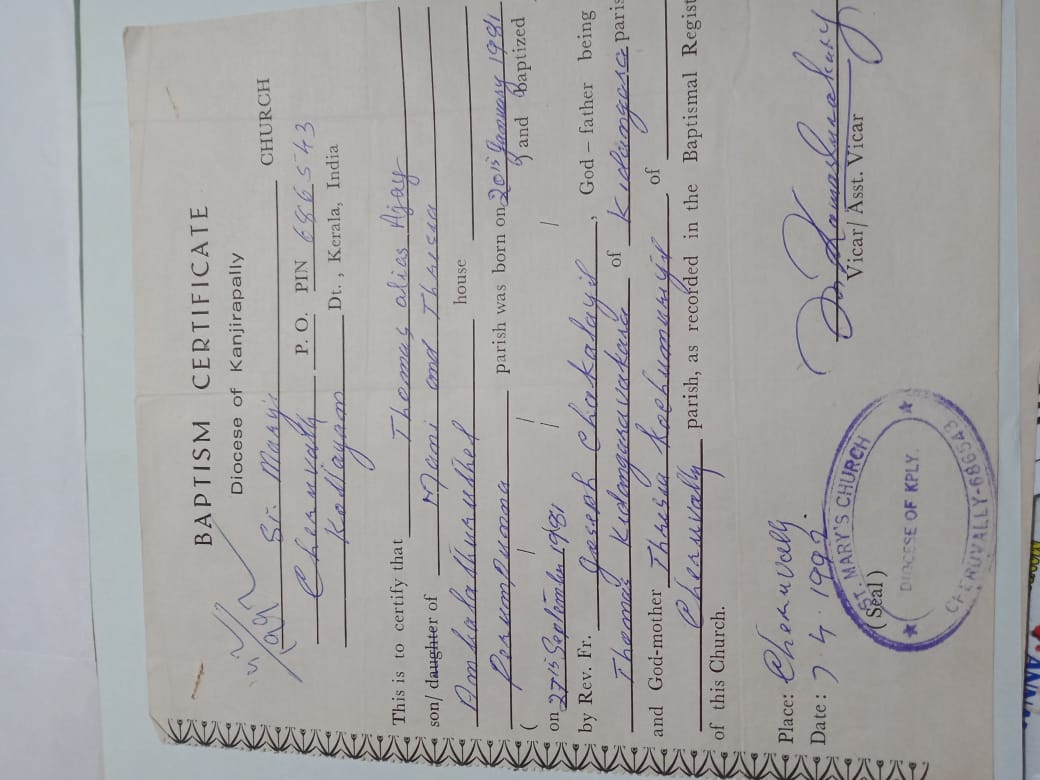 BAPTISM CERTIFICATE
Diocese of Kanjirapally
St. Mary's CHURCH
Cheruvally P. O. PIN 686543
Kottayam Dt., Kerala, India
This is to certify that Thomas alias Ajay
son/ daughter of Mani and Thresia
Ambalathunkel house
Perumpunna parish was born on 20th January 1981
( and baptized
on 27th September 1981
by Rev. Fr. Joseph Chakalayil, God-father being
Thomas Kidanganavakara of Kidangara parish
and God-mother Thresia Kochumuriyil of
Cheruvally parish, as recorded in the Baptismal Regist
of this Church.
Place: Cheruvally
Date: 7.4.1992.
(Seal)
ST. MARY'S CHURCH
DIOCESE OF KPLY.
CHERUVALLY-686543
Vicar/ Asst. Vicar